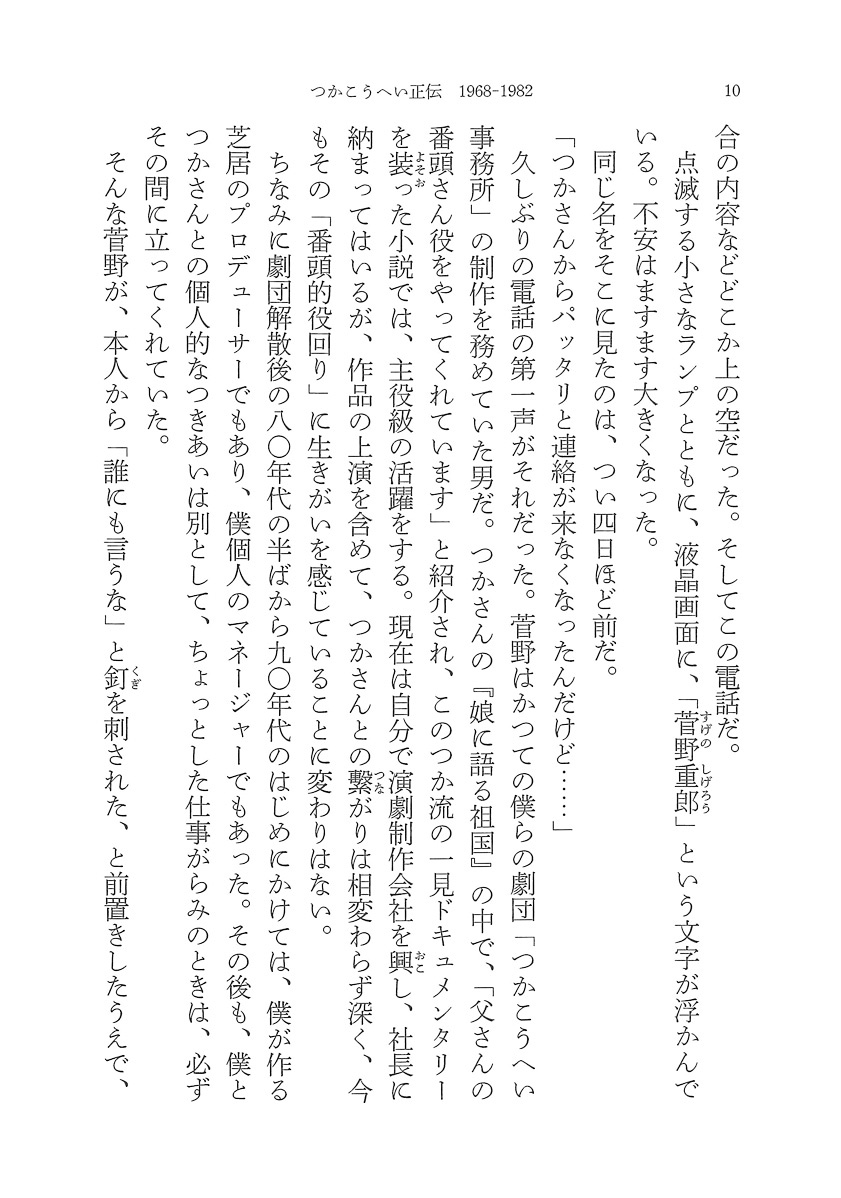 つかこうへい正伝　1968-1982
10
合の内容などどこか上の空だった。そしてこの電話だ。
　点滅する小さなランプとともに、液晶画面に、「菅野重郎」という文字が浮かんで
すげの　しげろう
いる。不安はますます大きくなった。
　同じ名をそこに見たのは、つい四日ほど前だ。
「つかさんからパッタリと連絡が来なくなったんだけど……」
　久しぶりの電話の第一声がそれだった。菅野はかつての僕らの劇団「つかこうへい
事務所」の制作を務めていた男だ。つかさんの『娘に語る祖国』の中で、「父さんの
番頭さん役をやってくれています」と紹介され、このつか流の一見ドキュメンタリー
を装った小説では、主役級の活躍をする。現在は自分で演劇制作会社を興し、社長に
よそお
おこ
納まってはいるが、作品の上演を含めて、つかさんとの繫がりは相変わらず深く、今
つな
もその「番頭的役回り」に生きがいを感じていることに変わりはない。
　ちなみに劇団解散後の八〇年代の半ばから九〇年代のはじめにかけては、僕が作る
芝居のプロデューサーでもあり、僕個人のマネージャーでもあった。その後も、僕と
つかさんとの個人的なつきあいは別として、ちょっとした仕事がらみのときは、必ず
その間に立ってくれていた。
　そんな菅野が、本人から「誰にも言うな」と釘を刺された、と前置きしたうえで、
くぎ